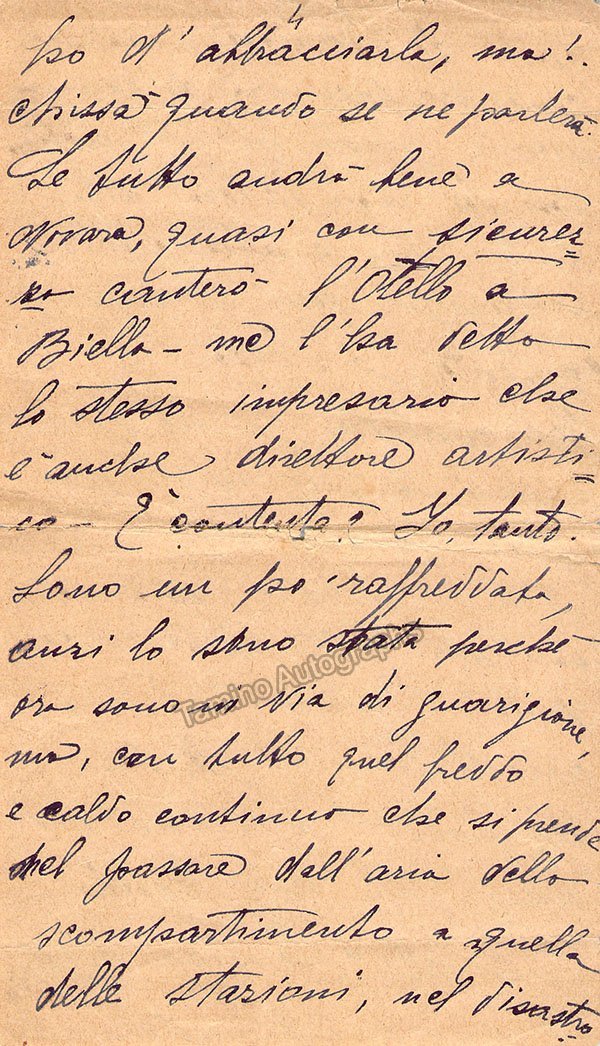 4
po d'abbracciarla, ma!..
chissà quando se ne parlerà.
Se tutto andrà bene a
Novara, quasi con sicurez=
za canterò l'Otello a
Biella - me l'ha detto
lo stesso impresario che
è anche direttore artisti=
co - È contenta? Io, tanto.
Sono un po' raffreddata,
anzi lo sono stata perché
ora sono in via di guarigione,
ma, con tutto quel freddo
e caldo continuo che si prende
nel passare dall'aria dello
scompartimento a quella
delle stazioni, nel disastro
Tamino Autographs